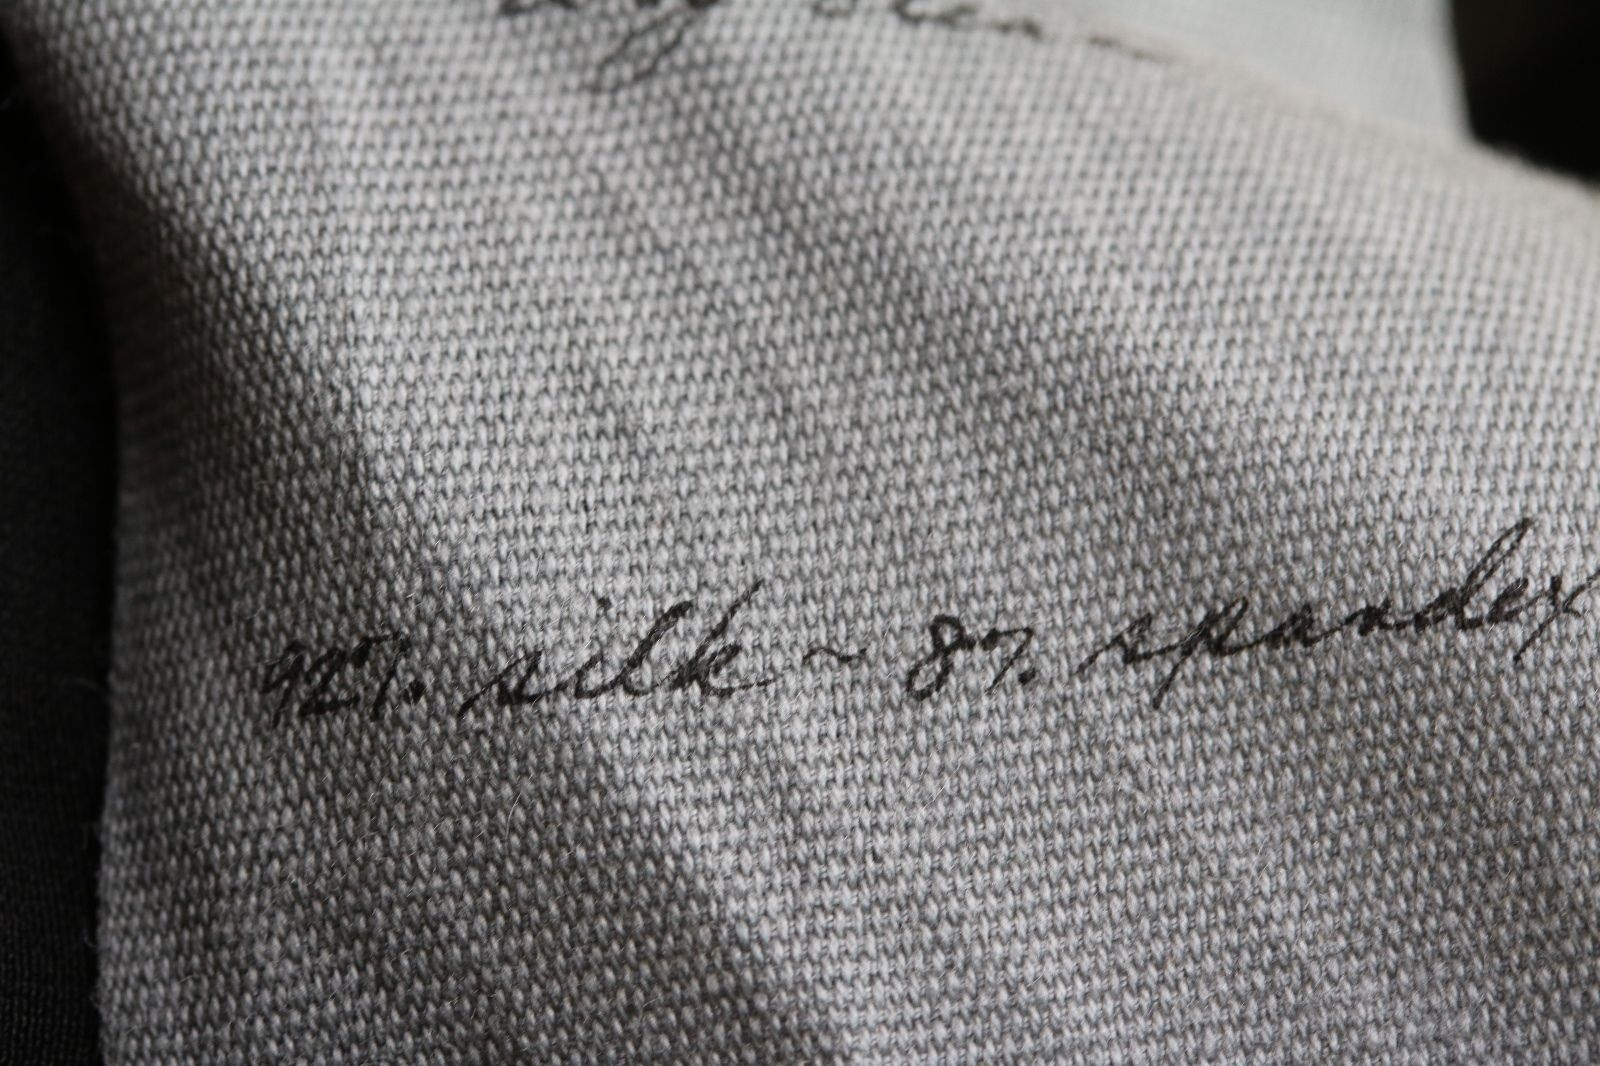 92% silk ~ 8% spandex